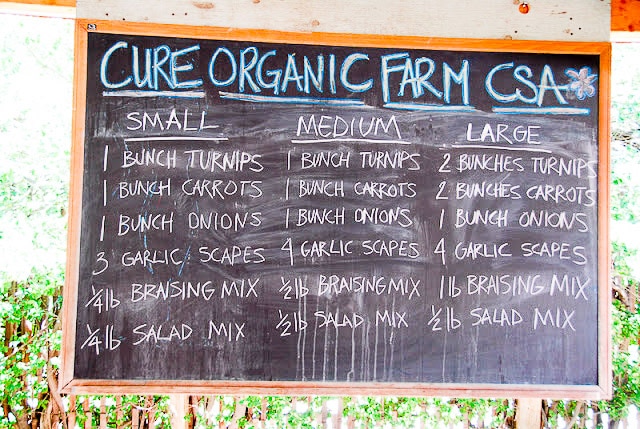 CURE ORGANIC FARM CSA
SMALL
1 BUNCH TURNIPS
1 BUNCH CARROTS
1 BUNCH ONIONS
3 GARLIC SCAPES
1/4 lb BRAISING MIX
1/4 lb SALAD MIX
MEDIUM
1 BUNCH TURNIPS
1 BUNCH CARROTS
1 BUNCH ONIONS
4 GARLIC SCAPES
1/2 lb BRAISING MIX
1/2 lb SALAD MIX
LARGE
2 BUNCHES TURNIPS
2 BUNCHES CARROTS
1 BUNCH ONIONS
4 GARLIC SCAPES
1 lb BRAISING MIX
1/2 lb SALAD MIX